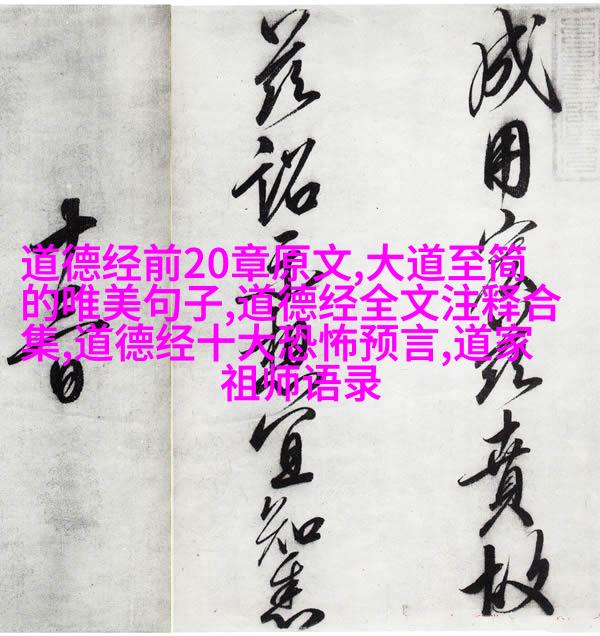 道德经前20章原文,大道至简
的唯美句子,道德经全文注释合
集,道德经十大恐怖预言,道家
祖师语录
成用兹賁故
兹詔示想宜知悉
十日